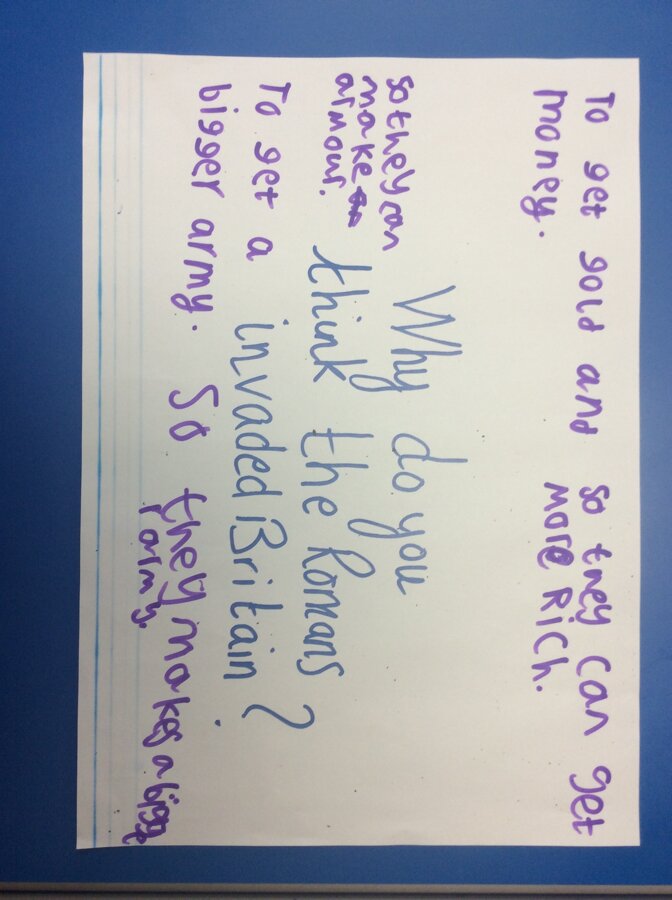 To get gold and
money.
so they can get
more Rich.
so they can
make
armour.
Why do you
think the Romans
invaded Britain?
To get a
bigger army.
So they makes a bigge
army.